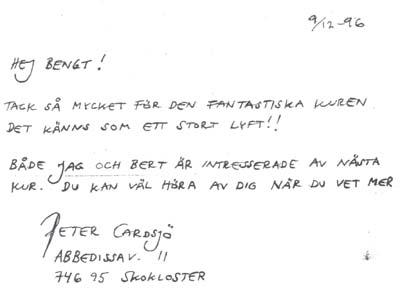 9/12-96
HEJ BENGT!
TACK SÅ MYCKET FÖR DEN FANTASTISKA KUREN
DET KÄNNS SOM ETT STORT LYFT!!
BÅDE JAG OCH BERT ÄR INTRESSERADE AV NÄSTA
KUR. DU KAN VÄL HÖRA AV DIG NÄR DU VET MER
PETER CARDSJÖ
ABBEDISSAV. 11
746 95 SKOKLOSTER